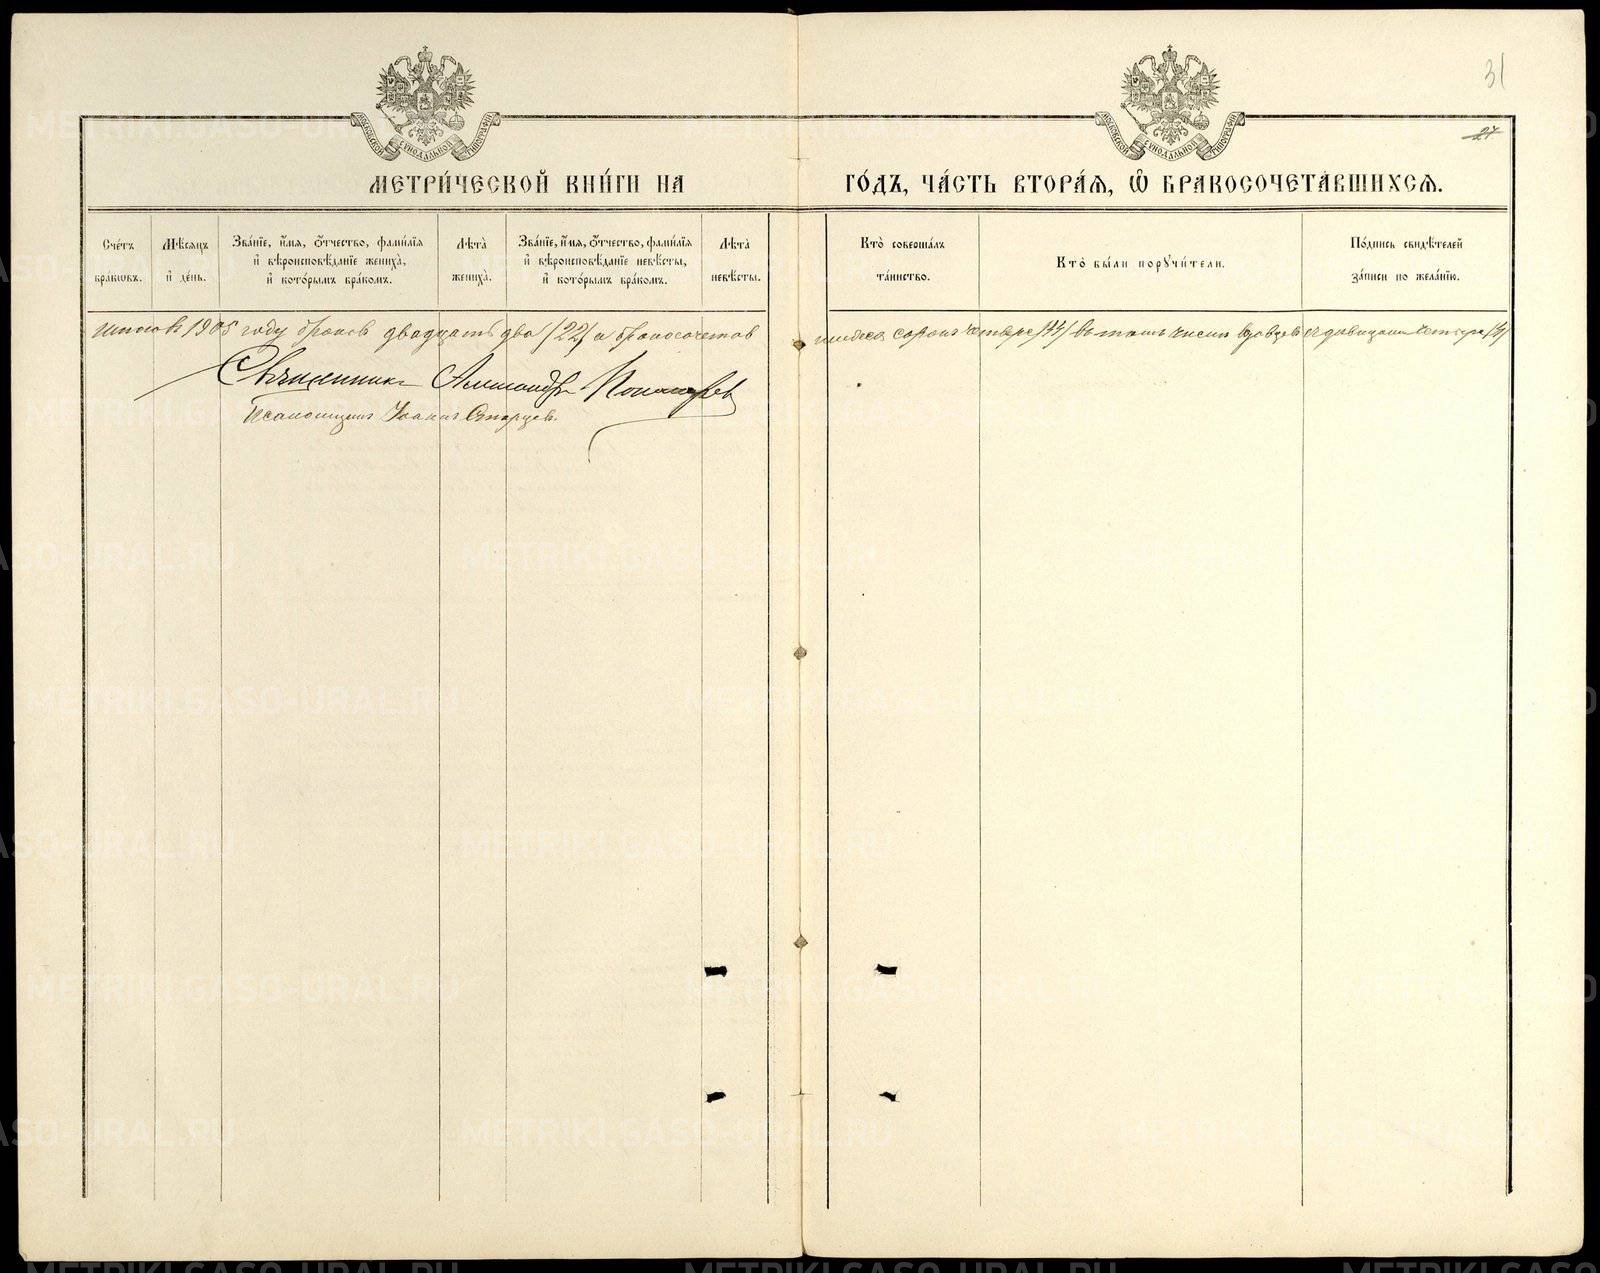 31
27
МЕТРИ́ЧЕСКОЙ КНИ́ГИ НА ГО́ДЪ, ЧА́СТЬ ВТОРА́Я, Ѽ БРАКОСОЧЕТА́ВШИХСЯ.
Сче́тъ бра́кѡвъ.
Мѣ́сяцъ и҆ де́нь.
Зва́нїе, и҆́мя, ѻ҆́тчество, фами́лїя и҆ вѣроисповѣ́данїе жениха̀, и҆ кото́рымъ бра́комъ.
Лѣ́та жениха̀.
Зва́нїе, и҆́мя, ѻ҆́тчество, фами́лїя и҆ вѣроисповѣ́данїе невѣ́сты, и҆ кото́рымъ бра́комъ.
Лѣ́та невѣ́сты.
Кто̀ соверша́лъ та́инство.
Кто̀ бы́ли порꙋчи́тели.
По́дпись свидѣ́телей за́писи по жела́нїю.
1905 году браков двадцать два (22) а бракосочетав
шихся сорок четыре (44) в том числе
Священник Александр Пономарев
Псаломщик Иоанн Старцев.
METRIKI.GASO-URAL.RU